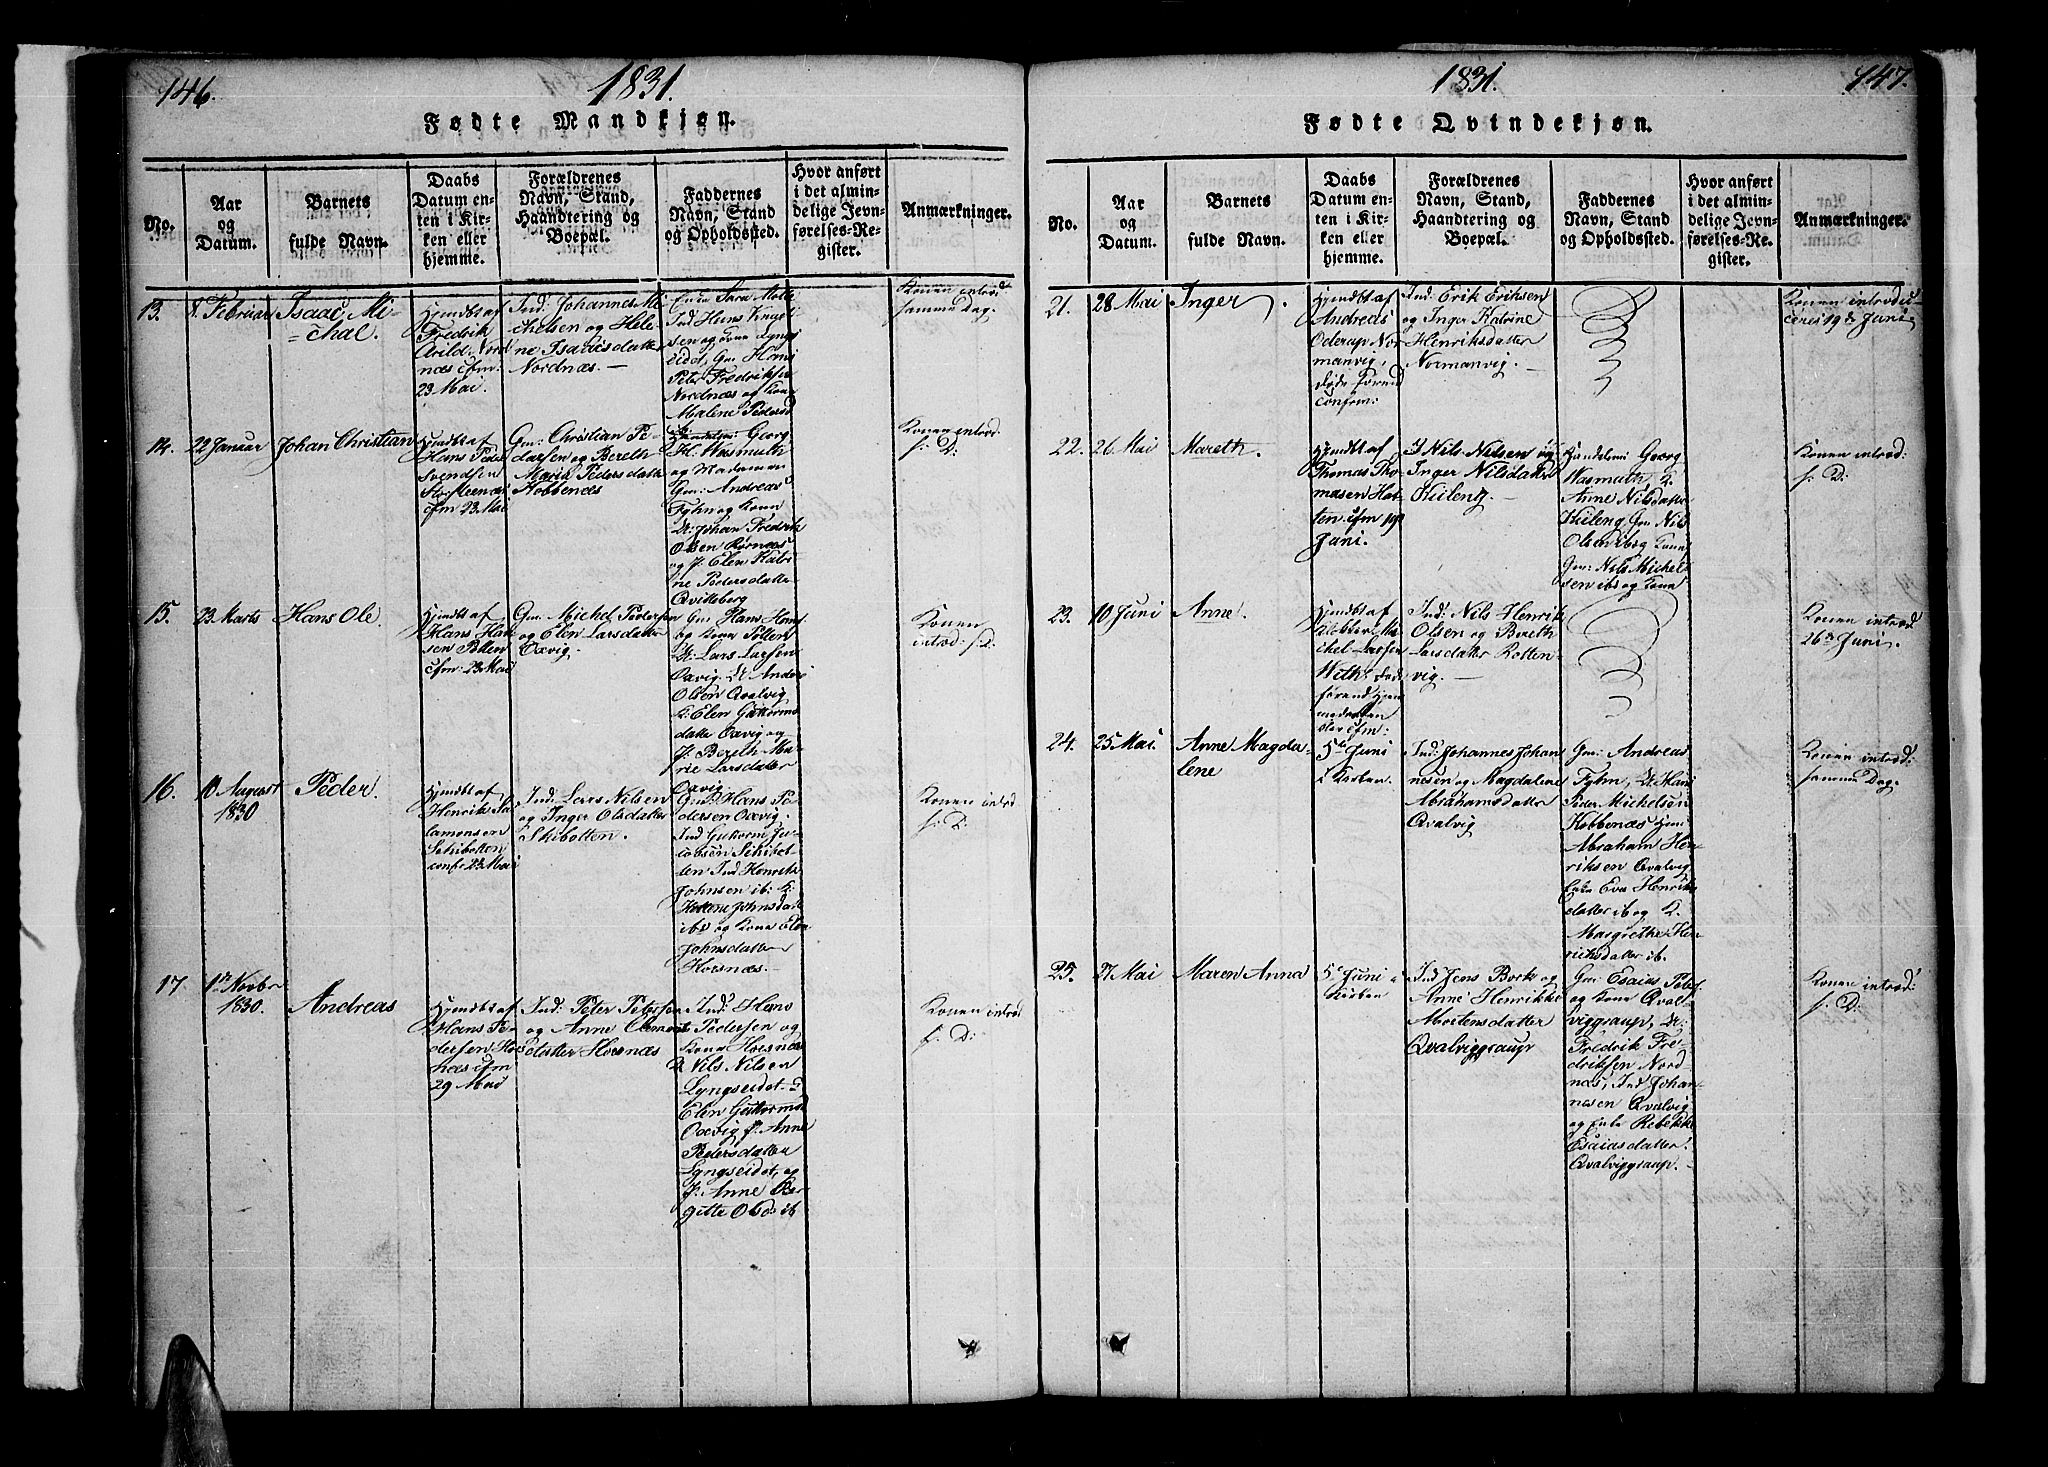 146.
1831.
Fødte Mandkjøn.
No.
Aar
og
Datum.
Barnets
fulde Navn.
Daabs
Datum en-
ten i Kir-
ken eller
hjemme.
Forældrenes
Navn, Stand,
Haandtering og
Boepæl.
Faddernes
Navn, Stand
og Opholdssted.
Hvor anført
i det almin-
delige Jevn-
førelses-Re-
gister.
Anmærkninger.
13.
8. Februar
Isaac Mi-
=chal.
Hjemdbt af
Fredrik
Arild Nord
næs cfm.
23 Mai.
Ind: Johannes Mi-
chelsen og Hele-
ne Isachsdatter
Nordnæs. —
Enke Sara
Ind Hans Knudt
sen og Kona Lyngs
eidet, Gm: Hans
Peter Fredriksen
Nordnæs og Kona
Malene Pedersd
Konen introd
samme Dag.
14.
22 Januar
Johan Christian
Hjemdbt af
Hans Peder
Svendsen
Storsteennæs
cfm 23 Mai
Gm: Christian Pe-
dersen og Bereth
Maria Pedersdatter
Kobbenæs
Handelsm: Georg
Hl. Wasmuth
og Madamen
Gm: Andreas
Fyhn og Kona
Dr: Johan Fredrik
Olsen Rørnæs
og P. Elen Katri
ne Pedersdatter
Qvitteberg
Konen introd:
s: D:
15.
23 Marts
Hans Ole.
Hjemdbt af
Hans Han
sen Pollen
cfm: 23 Mai
Gm: Michel Pedersen
og Elen Larsdatter
Oxvig.
Gm: Hans Hans
og Kona Pollen
Dr: Lars Larsen
Oxvig. Dr Anders
Olsen Qvalvig
K: Elen Guttormd
datter Oxvig og
P. Bereth Ma-
rie Larsdatter
Oxvig
Konen
introd: s: D:
16.
10 August
1830
Peder.
Hjemdbt af
Henrik Sa
lamonsen
Schibotten
confr 23 Mai
Ind: Lars Nilsen
og Inger Olsdatter
Skibotten.
Gm: Hans Pe-
dersen Oxvig.
Ind Guttorm Ja-
cobsen Schibot-
ten Ind: Henrik
Johnsen ib: K:
Johnsdatt
ibd og Kona Elen
Johnsdatter
Horsnæs. —
Konen introd
s: D:
17
1de Novbr
1830.
Andreas
Hjemdbt af
Hans Pe-
dersen Hors
næs cfm
29 Mai
Ind: Peter Petersen
og Anne Clements
datter Horsnæs
Ind: Hans
Pedersen og
Kona Horsnæs
D. Nils Nilsen
Lyngseidet
Elen Guttormd
Oxvig P: Anne
Pedersdatter
Lyngseidet, og
P: Anne Ber-
gitte Olsds ib
Konen introd
s: D:
1831.
147.
Fødte Qvindekjøn.
No.
Aar
og
Datum.
Barnets
fulde Navn.
Daabs
Datum en-
ten i Kir-
ken eller
hjemme.
Forældrenes
Navn, Stand,
Haandtering og
Boepæl.
Faddernes
Navn, Stand
og Opholdssted.
Hvor anført
i det almin-
delige Jevn-
førelses-Re-
gister.
Anmærkninger.
21.
28 Mai
Inger.
Hjemdbt af
Andreas
Oderup Nor
manvig,
døde forend
confirm:
Ind: Erik Eriksen
og Inger Katrine
Henriksdatter
Normanvig. —
Konen introdu-
ceres 19de Juni.
22.
26 Mai
Mareth.
Hjemdbt af
Thomas Tho
masen Hat
ten. cfm 19d
Juni.
I Nils Nilsen og
Inger Nilsdatter
Kiileng. —
Handelsm: Georg
Wasmuth, K.
Anne Nilsdatter
Kiileng, Gm: Nils
Olsen ib og Kona
Gm: Nils Michel
sen ibd og Kona
Konen introd:
s: D:
23.
10 Juni
Anne.
Hjemdbt af
Klokker Mi
chel Larsen
With, døde
førend Hjem
medaaben
blev cfm.
Ind: Nils Henrik
Olsen og Bereth
Larsdatter Rotten-
vig. —
Konen introd
26de Juni.
24.
25 Mai.
Anne Magda-
lene
5te Juni
i Kirken
Ind: Johannes Johan
nesen og Magdalene
Abrahamsdatter
Qvalvig
Gm: Andreas
Fyhn, Dr: Hans
Peder Michelsen
Kobbenæs
Abraham Hen-
riksen Qvalvig
Enke Eva Henriks
datter ib og K.
Margrethe Hen-
riksdatter ib.
Konen introd:
samme Dag.
25.
27 Mai
Maren Anna
5te Juni i
Kirken
Ind Jens Bork og
Anne Henrikke
Mortensdatter
Qvalviggraup
Gm: Esaias Peters
og Kona Qval-
viggraup, Dr:
Fredrik Fre-
driksen Nord-
næs, Ind: Johan-
nesen Qvalvig
og Enke Rebekke
Esaiasdatter
Qvalviggraup. —
Konen introd:
s: D: